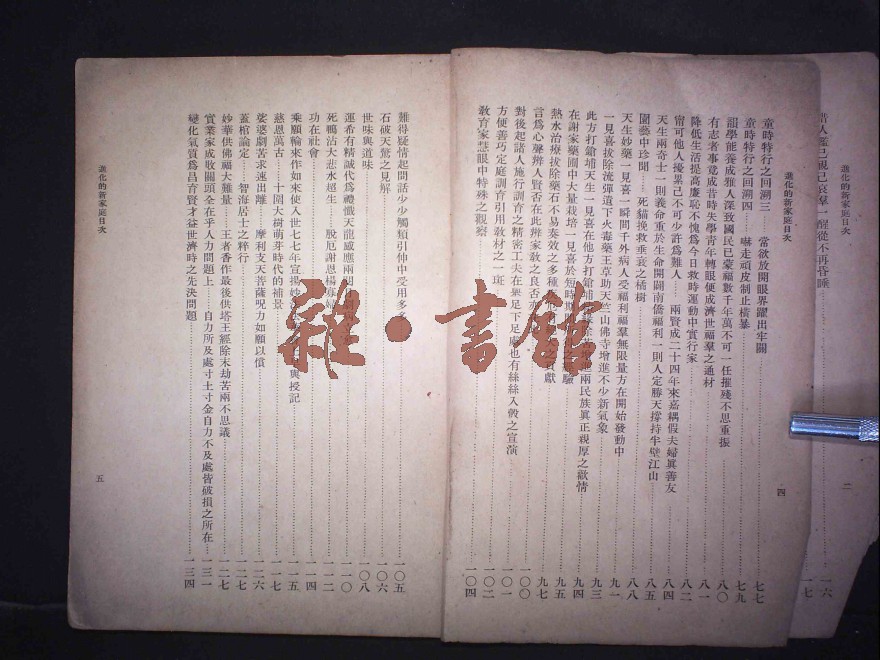 昔人鑑已視已哀羣一醒從不再昏睡 一六
一七
進化的新家庭目次
二
進化的新家庭目次
童時特行之回溯三 當欲放開眼界躍出牢關 七七
童時特行之回溯四 嚇走頑皮制止橫暴 七九
韻學能養成雅人深致國民已蒙福數千年萬不可一任摧殘不思重振 八〇
有志者事竟成昔時失學青年轉眼便成濟世福羣之通材 八一
降低生活提高廉恥不愧爲今日救時運動中實行家 八二
甯可他人擾累己不可少許爲難人 兩賢成二十四年來嘉耦假夫婦眞善友 八四
天生兩奇士一則義命重於生命開闢南僑福利一則人定勝天撐持半壁江山 八五
園藝中珍聞 死貓挽救垂衰之橘樹 八八
天生妙藥一見喜一瞬間千外病人受福利福羣無限量方在開始發動中 九一
一見喜拔除流彈遺下火毒藥王草助天竺山佛寺增進不少新氣象 九三
此方打鎗埔天生一見喜在他方打鎗埔 兩民族眞正親厚之歡情 九五
在謝家藥園中大量栽培一見喜於短時 驗 九七
熱水治療拔除藥石不易奏效之多種 獻
言爲心聲辨人賢否在此辨家敎之良否 一〇〇
對後起諸人施行訓育之精密工夫在舉足下足處也有絲絲入彀之宣演 一〇一
方便善巧定庭調育引用敎材之一斑 一〇二
敎育家慧眼中特殊之觀察 一〇四
四
難得疑情起問話少少觸類引伸中受用多多 一〇五
石破天驚之見解 一〇六
世味與道味 一〇八
運希有精誠代爲禮懺天龍威應兩間 一一〇
死鴨沾大悲水超生 脫厄謝恩楊寡婦 一一二
功在社會 一一四
乘願輪來作如來使入世七七年宣揚妙 與授記 一一五
慈恩萬古 十圍大樹萌芽時代的補景 一一七
娑婆劇苦求速出離 摩利支天菩薩呪力如願以償 一二六
蓋棺論定 智海居士之粹行 一二七
妙華供佛福大難量 王者香作最後供塔王經除末劫苦兩不思議 一二七
實業家成敗關頭全在乎人力問題上 自力所及處寸土寸金自力不及處皆破損之所在 一三一
變化氣質爲昌育賢才益世濟時之先決問題 一三四
五
雜·書館